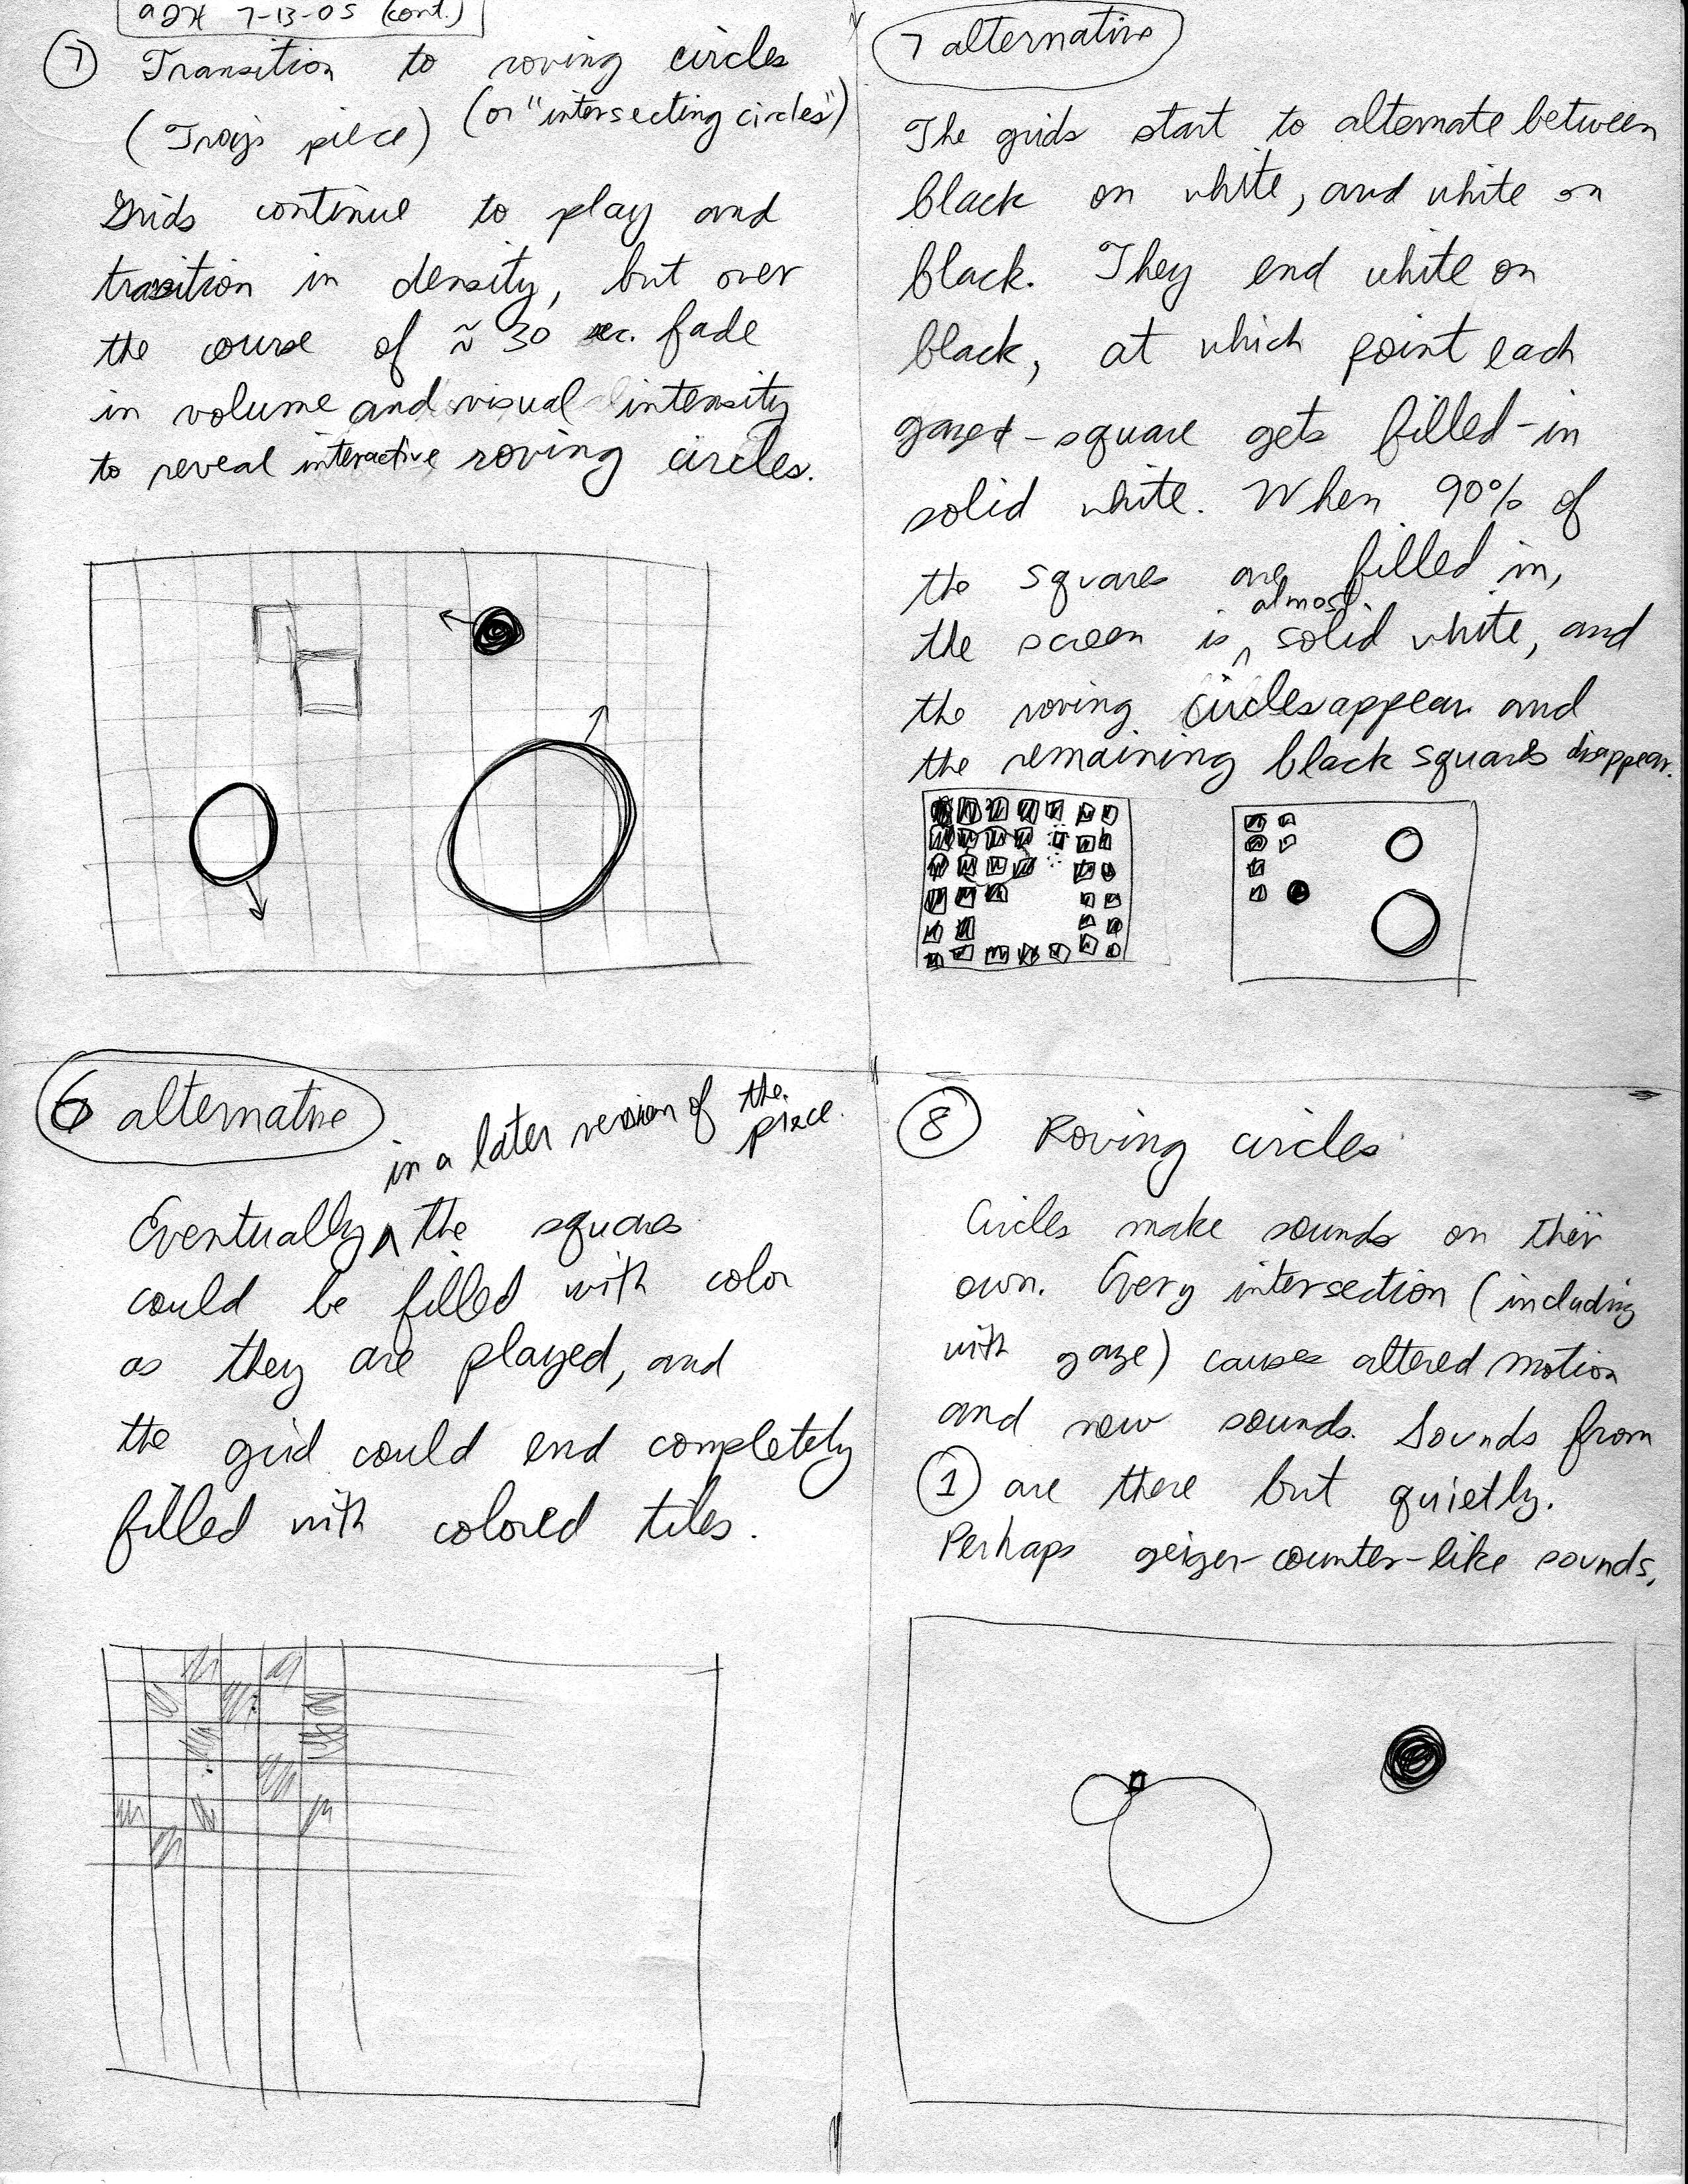 7-13-05 (cont.)
7 Transition to roving circles
(or "intersecting circles")
(Troy's piece)
Grids continue to play and
transition in density, but over
the course of ≈ 30 sec. fade
in volume and visual intensity
to reveal interactive roving circles.
7 alternative
The grids start to alternate between
black on white, and white on
black. They end white on
black, at which point each
gazed-square gets filled-in
solid white. When 90% of
the squares are filled in,
the screen is almost solid white, and
the roving circles appear and
the remaining black squares disappear.
6 alternative
Eventually in a later version of the piece. the squares
could be filled with color
as they are played, and
the grid could end completely
filled with colored tiles.
8 Roving circles
Circles make sounds on their
own. Every intersection (including
with gaze) causes altered motion
and new sounds. Sounds from
1 are there but quietly.
Perhaps geiger-counter-like sounds.